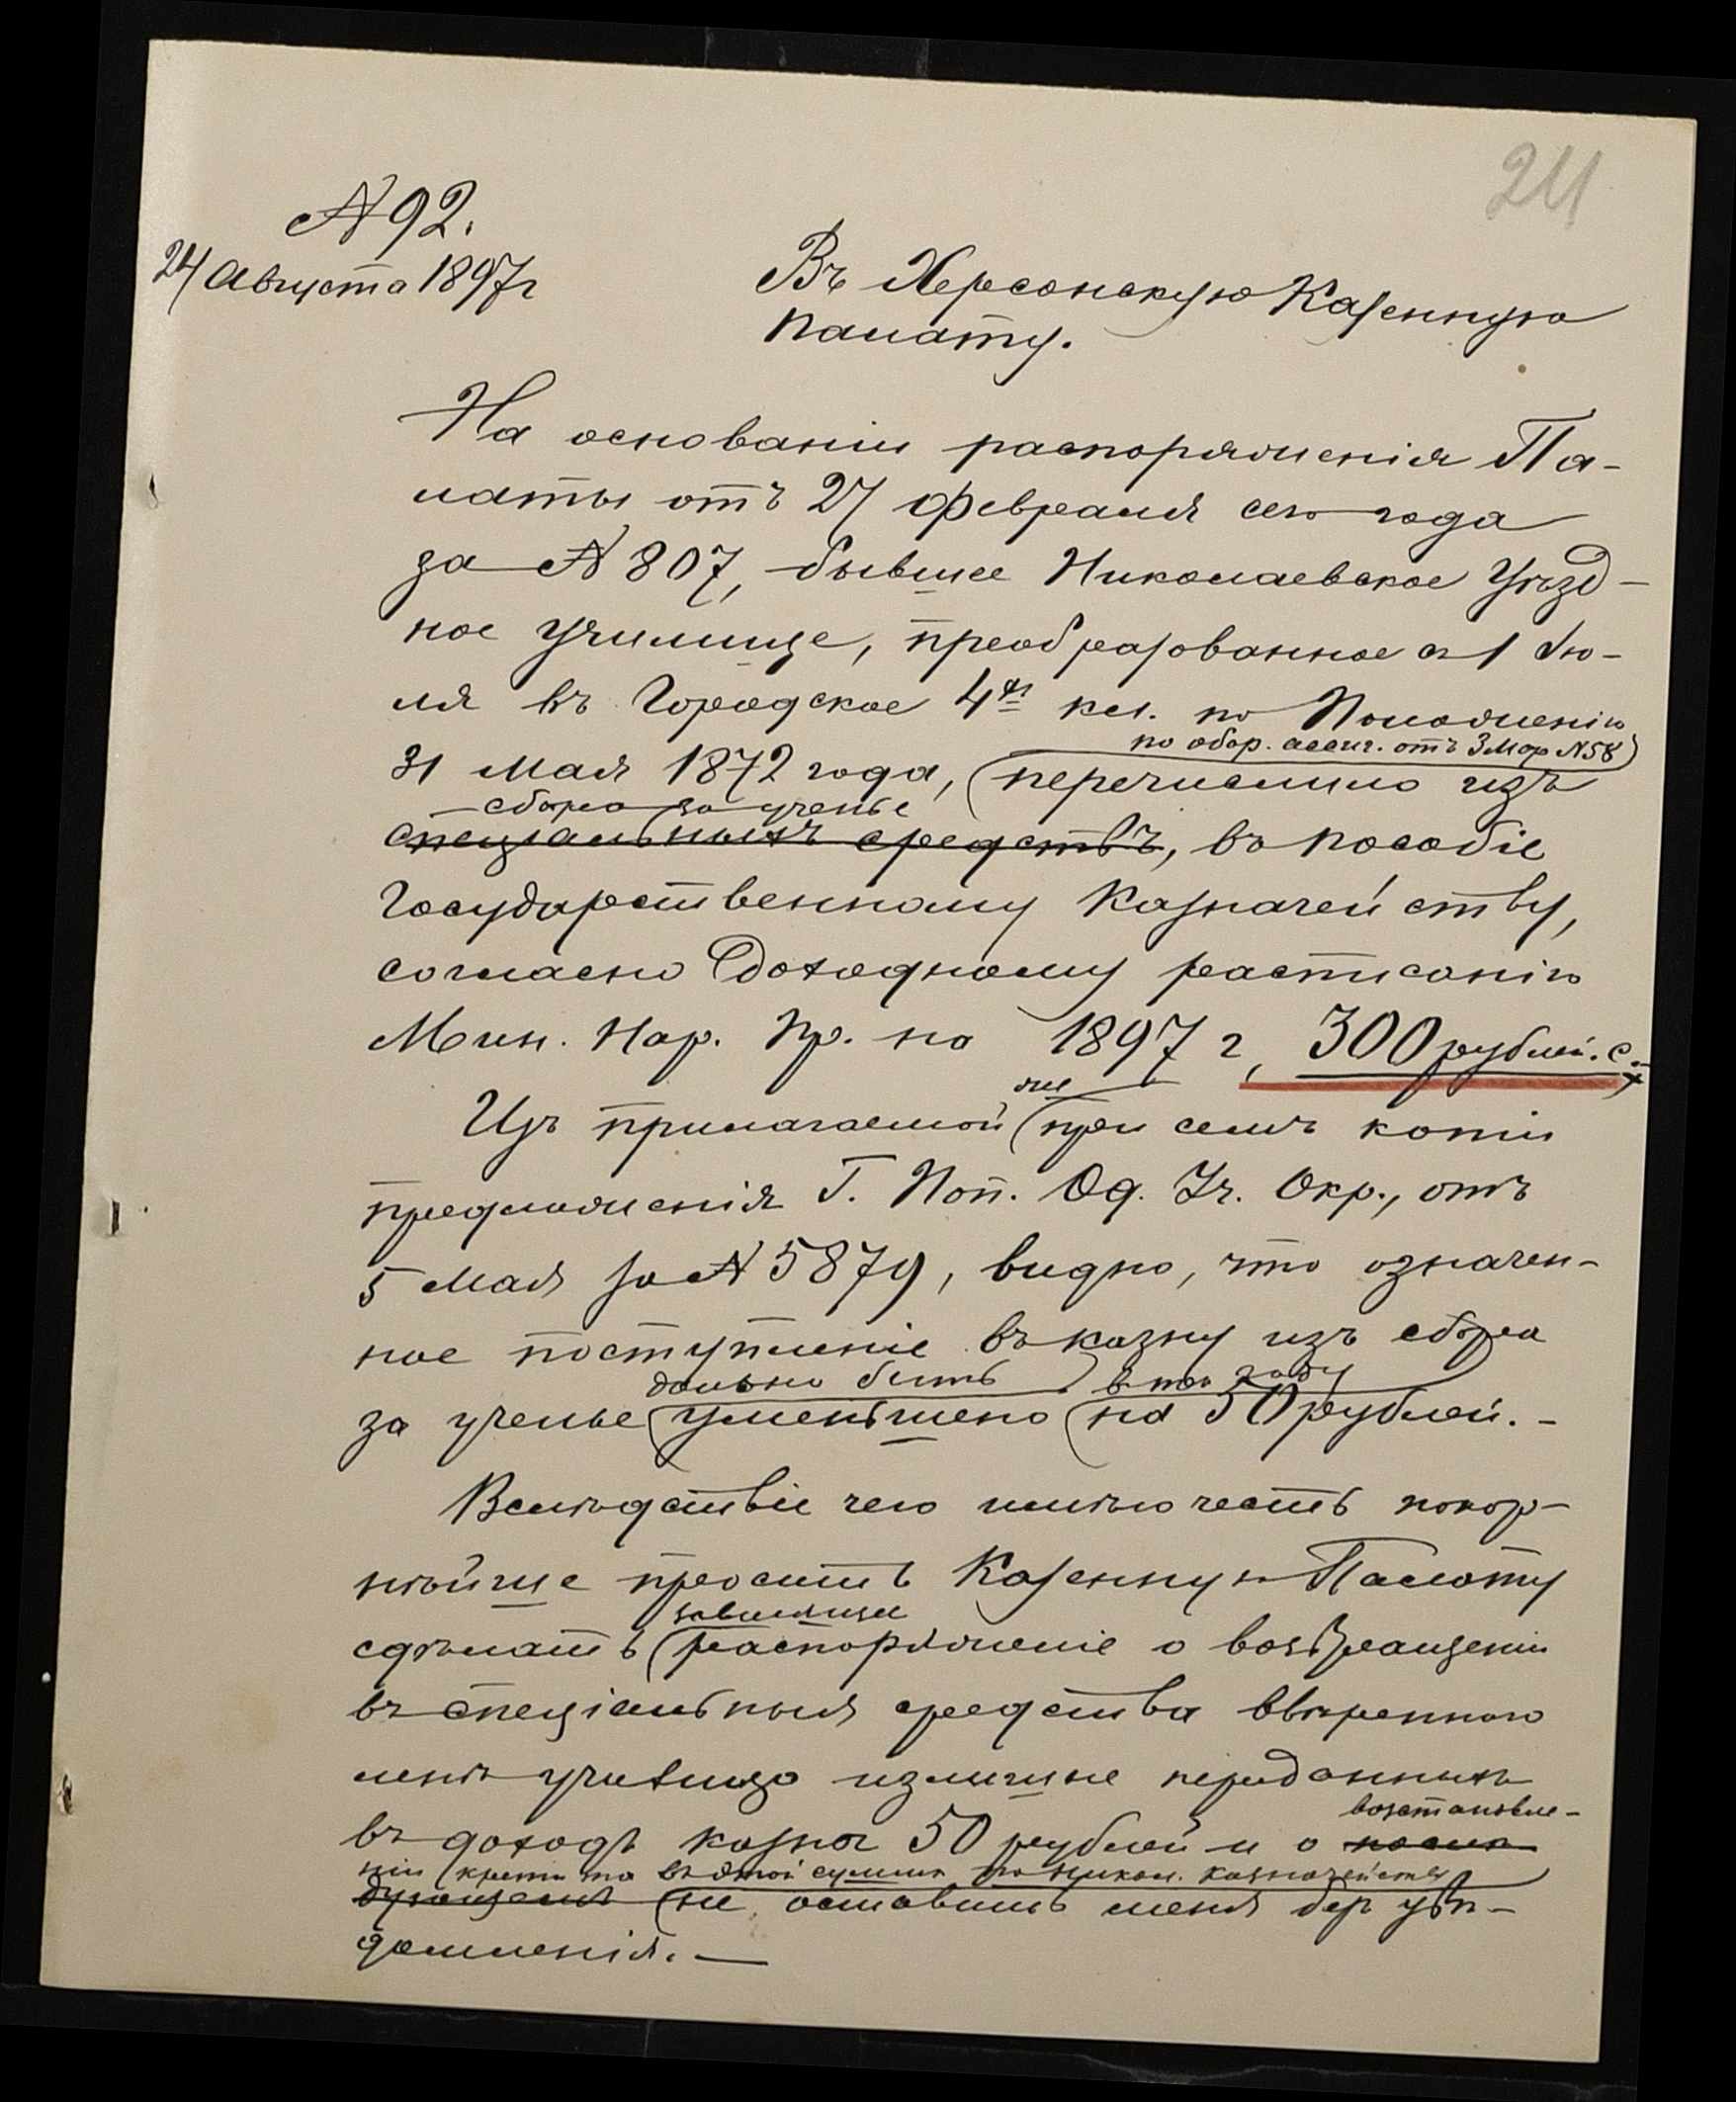 211
№ 92.
24 Августа 1897 г
Въ Херсонскую Казенную
Палату.
На основаніи распоряженія Па-
латы отъ 27 Февраля сего года
за № 807, бывшее Николаевское Уѣзд-
ное училище, преобразованное съ 1 Ію-
ля въ Городское 4хъ кл. по Положенію
по обор. ассиг. отъ 3 Мар № 58
31 Мая 1872 года, перечислило изъ
сбора за ученье
спеціальныхъ средствъ, въ пособіе
Государственному Казначейству,
согласно доходному расписанію
Мин. Нар. Пр. на 1897 г, 300 рублей. с.
же
Изъ прилагаемой при семъ копіи
предложенія Г. Поп. Од. Уч. Окр., отъ
5 Мая за № 5879, видно, что означен-
ное поступленіе въ казну изъ сбора
должно быть в том году
за ученье уменьшено на 50 рублей. -
Вслѣдствіе чего имѣю честь покор-
нѣйше просить Казенную Палату
зависящее
сдѣлать распоряженіе о возвращеніи
въ спеціальныя средства ввѣреннаго
мнѣ училища излишне переданныхъ
возстановле-
въ доходъ казны 50 рублей и о
ніи кредита въ этой суммѣ по Никол. Казначейству
не оставить меня безъ увѣ-
домленія. —